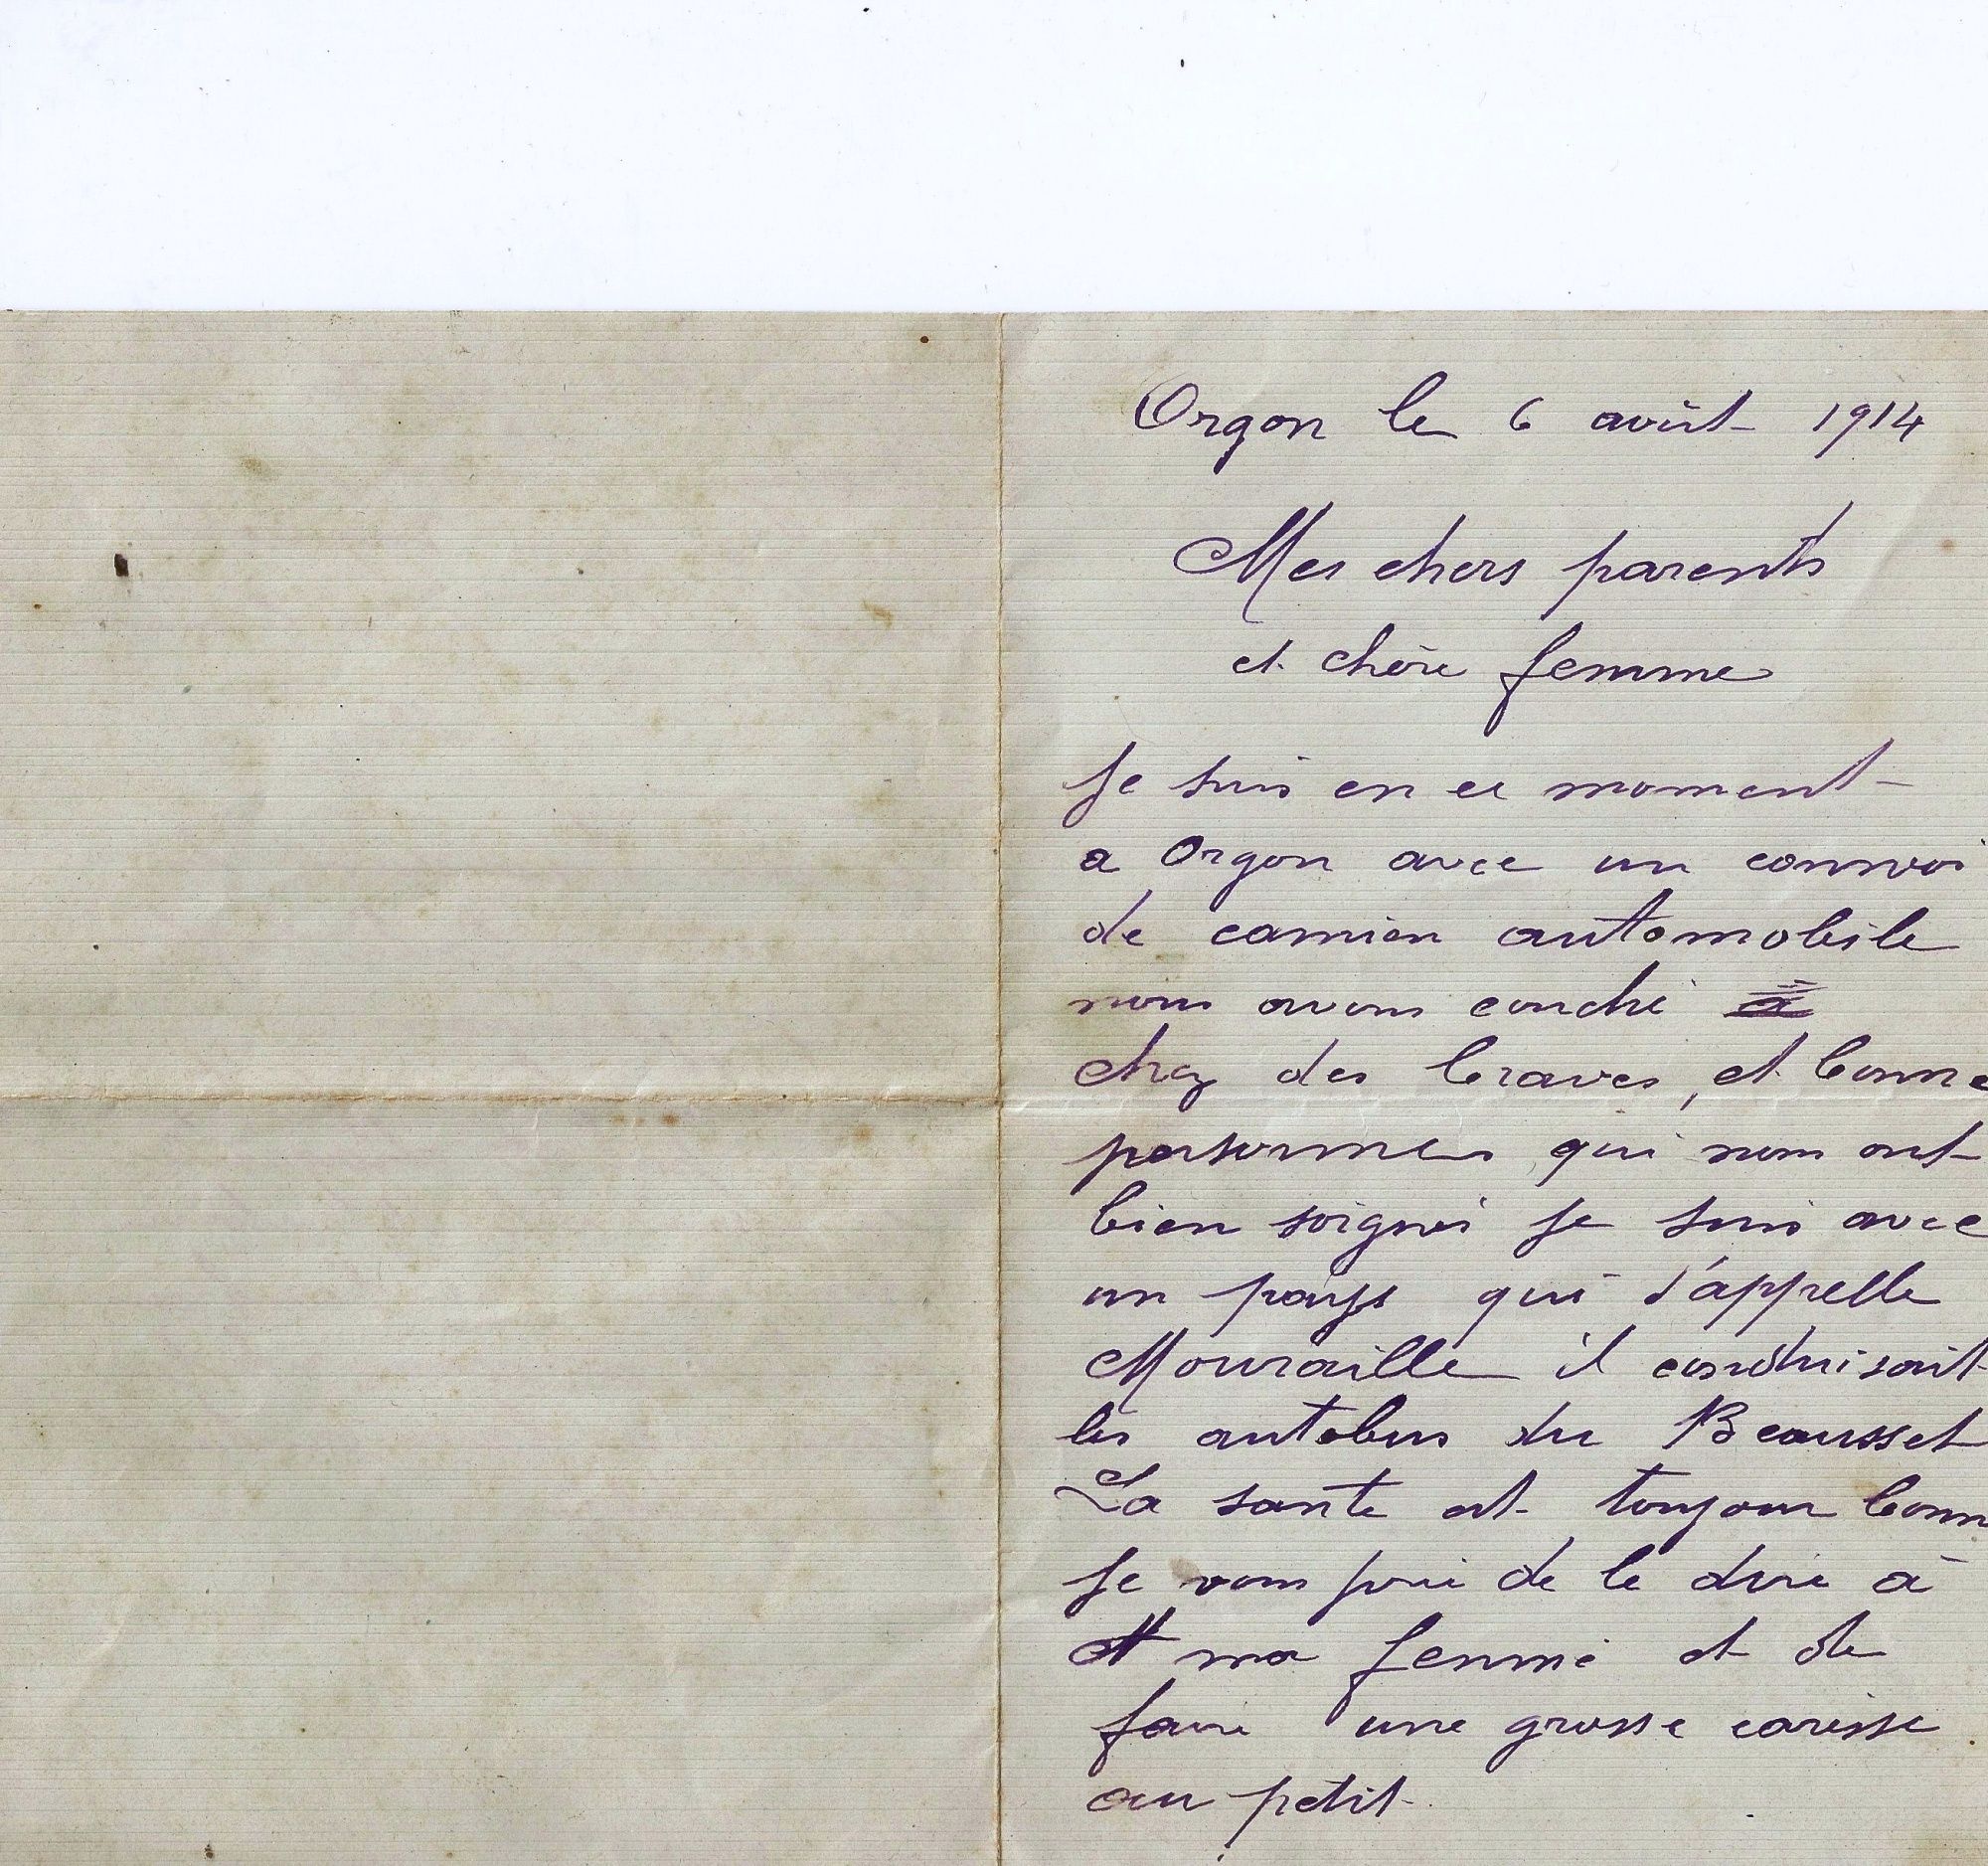 Orgon le 6 août 1914
Mes chers parents
et chère femme
Je suis en ce moment
a Orgon avec un convoi
de camion automobile
nous avons couché a
chez des braves, et bonne
personnes qui nous ont
bien soigné je suis avec
un pays qui s'appelle
Mouraille il conduisait
les autobus du Beausset
La sante est toujour bonn
Je vous prie de le dire à
ma femme et de
faire une grosse caresse
au petit.